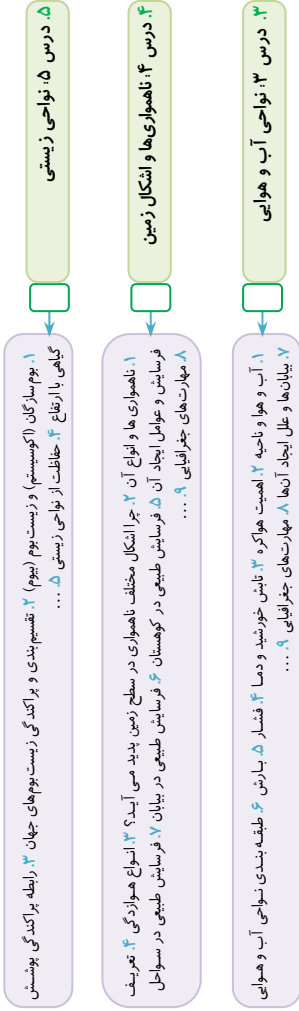 ۳. درس ۳: نواحی آب و هوایی
۱. آب و هوا و ناحیه ۲. اهمیت هواکره ۳. تابش خورشید و دمـا ۴. فشـار ۵. بـارش ۶. طبقـه بنـدی نـواحی آب و هـوایی
۷. بیابان‌ها و علل ایجاد آن‌ها ۸. مهارت‌های جغرافیایی ۹. ...
۴. درس ۴: ناهمواری‌ها و اشکال زمین
۱. ناهمواری ها و انواع آن ۲. چرا اشکال مختلف ناهمواری در سطح زمین پدید مـی آیـد؟ ۳. انـواع هـوازدگی ۴. تعریـف
فرسایش و عوامل ایجاد آن ۵. فرسایش طبیعی در کوهستان ۶. فرسایش طبیعی در بیابان ۷. فرسایش طبیعی در سـواحل
۸. مهارت‌های جغرافیایی ۹. ...
۵. درس ۵: نواحی زیستی
۱. بوم‌سازگان (اکوسیستم) و زیست‌بوم (بیوم) ۲. تقسیم‌بندی و پراکندگی زیست‌بوم‌های جهان ۳. رابطه پراکندگی پوشـش
گیاهی با ارتفاع ۴. حفاظت از نواحی زیستی ۵. ...